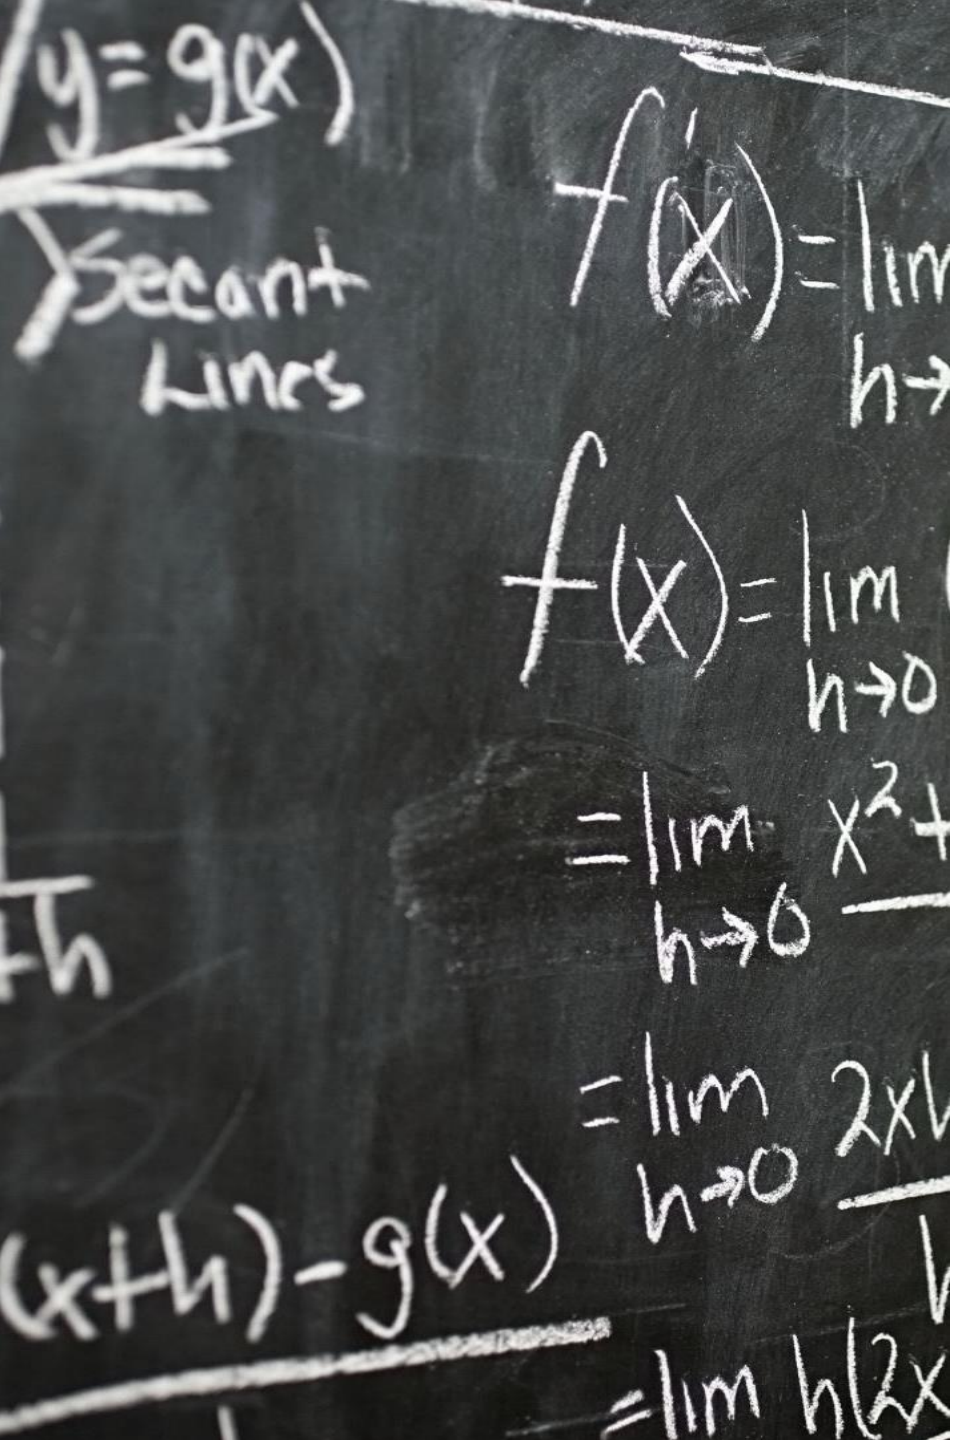 y = g(x)
Secant
Lines
+h
(x+h) - g(x)
f'(x) = lim
h→
f(x) = lim
h→0
= lim x² +
h→0
= lim 2xh
h→0 h
= lim h(2x